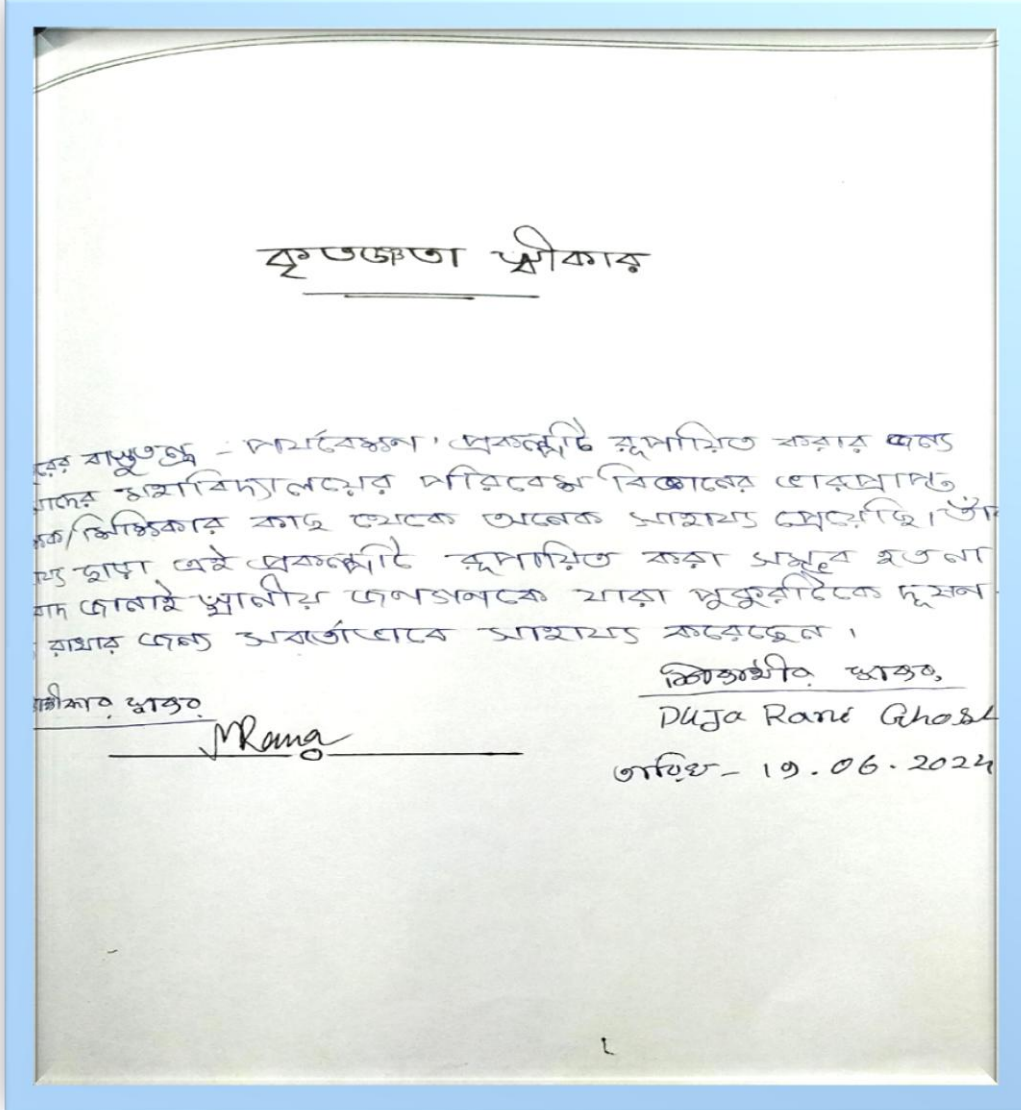 কৃতজ্ঞতা স্বীকার
রের বাস্তুতন্ত্র - পর্যবেক্ষণ' প্রকল্পটি রূপায়িত করার জন্য
াদের মহাবিদ্যালয়ের পরিবেশ বিজ্ঞানের ভারপ্রাপ্ত
ক/শিক্ষিকার কাছ থেকে অনেক সাহায্য পেয়েছি। তাঁ
য্য ছাড়া এই প্রকল্পটি রূপায়িত করা সম্ভব হতনা
বাদ জানাই স্থানীয় জনগনকে যারা পুকুরটিকে দূষন
রাখার জন্য সবর্তোভাবে সাহায্য করেছেন।
শিক্ষার্থীর স্বাক্ষর
ক্ষীকার স্বাক্ষর
Puja Rani Ghosh
MRana
তারিখ - 19.06.2024
1